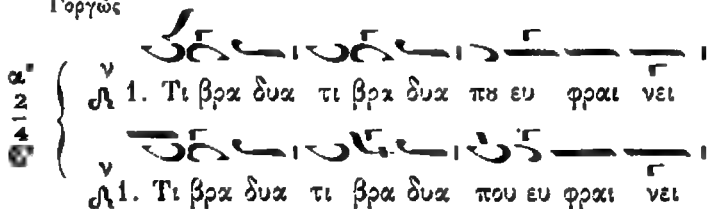 Γοργῶς
α´
ν
1. Τι βρα δυα τι βρα δυα πȣ ευ φραι νει
2
4
ν
1. Τι βρα δυα τι βρα δυα που ευ φραι νει